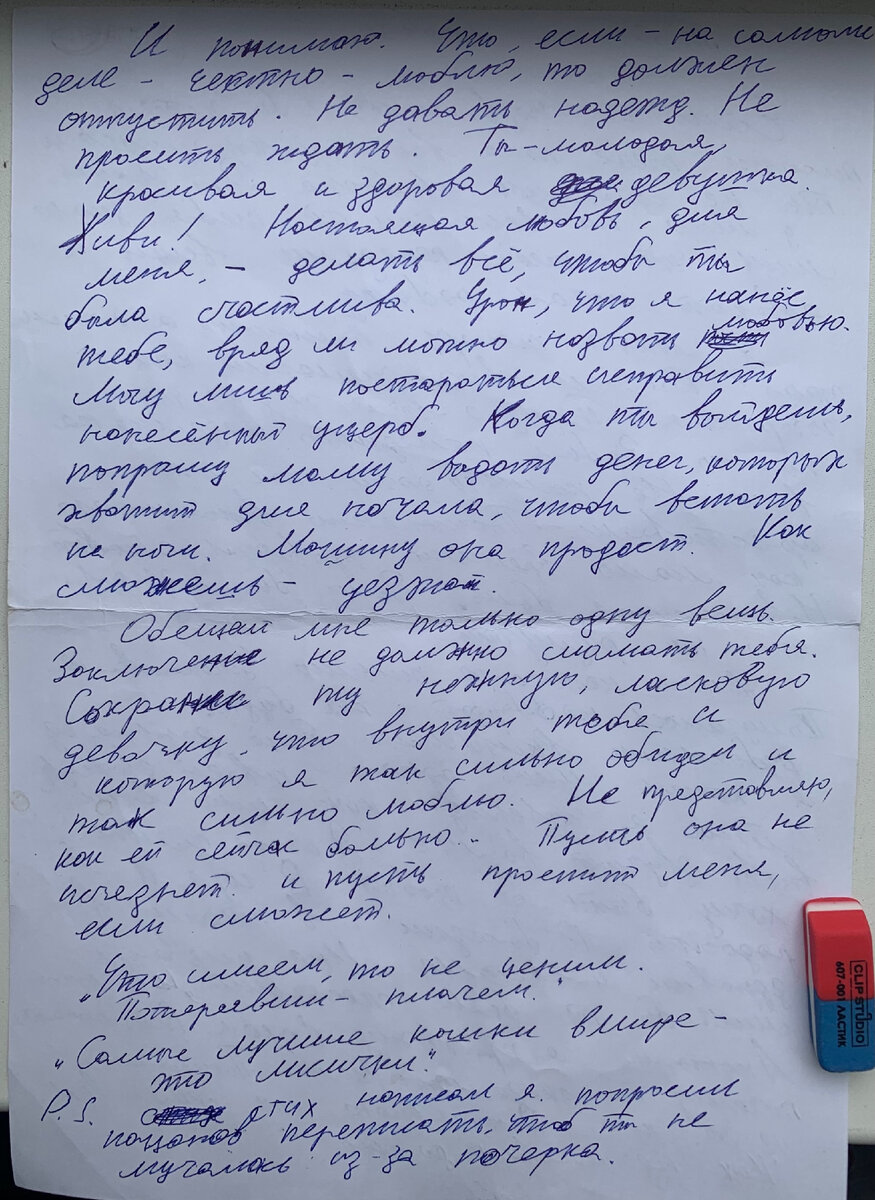 И понимаю. Что, если – на самом
деле – честно – люблю, то должен
отпустить. Не давать надежд. Не
просить ждать. Ты – молодая,
красивая и здоровая девушка.
Живи! Настоящая любовь, для
меня, – делать всё, чтобы ты
была счастлива. Урон, что я нанёс
тебе, вряд ли можно назвать любовью.
Могу лишь постараться исправить
нанесённый ущерб. Когда ты выйдешь,
попрошу маму выдать денег, которых
хватит для начала, чтобы встать
на ноги. Машину она продаст. Как
сможешь – уезжай.
Обещай мне только одну вещь.
Заключение не должно сломать тебя.
Сохрани ту нежную, ласковую
девочку, что внутри тебя и
которую я так сильно обидел и
так сильно люблю. Не представляю,
как ей сейчас больно.. Пусть она не
исчезнет и пусть простит меня,
если сможет.
„Что имеем, то не ценим.
Потерявши – плачем."
„Самые лучшие кошки в мире –
это лисички".
P.S. стих написал я. попросил
пацанов переписать, чтоб ты не
мучалась из-за почерка.
CLIP STUDIO
607-001 ЛАСТИК